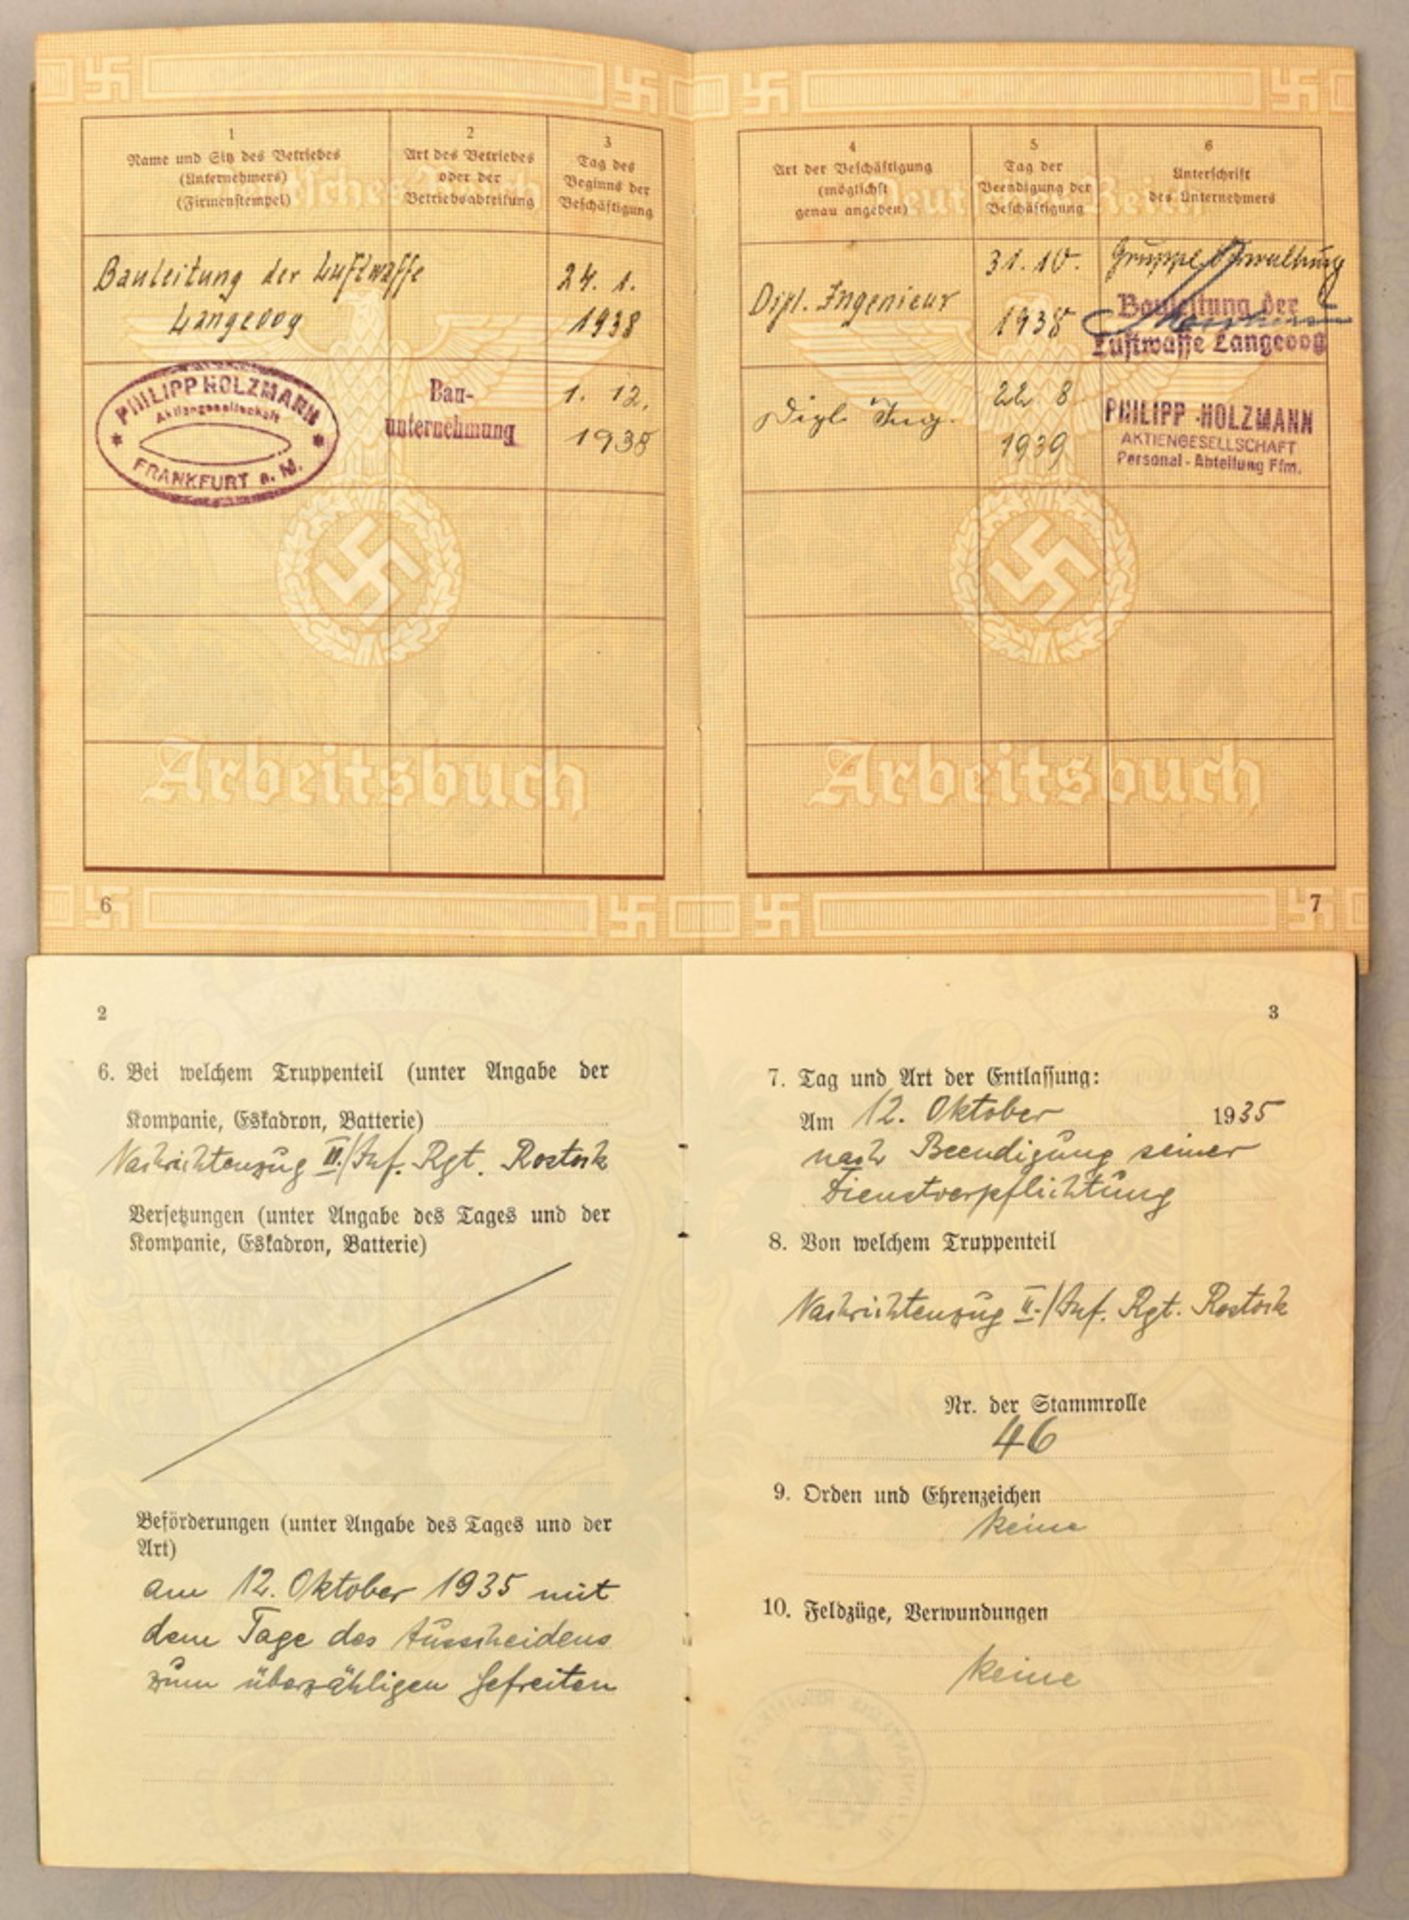 1
Name und Sitz des Betriebes
(Unternehmers)
(Firmenstempel)
2
Art des Betriebes
oder der
Betriebsabteilung
3
Tag des
Beginns der
Beschäftigung
Bauleitung der Luftwaffe
Langeoog
24. 1.
1938
PHILIPP HOLZMANN
Aktiengesellschaft
FRANKFURT a. M.
Bau-
unternehmung
1. 12.
1938
Deutsches Reich
Arbeitsbuch
6
4
Art der Beschäftigung
(möglichst
genau angeben)
5
Tag der
Beendigung der
Beschäftigung
6
Unterschrift
des Unternehmers
Dipl. Ingenieur
31. 10.
1938
Gruppe Verwaltung
Bauleitung der
Luftwaffe Langeoog
Dipl. Ing.
22 8
1939
PHILIPP HOLZMANN
AKTIENGESELLSCHAFT
Personal-Abteilung Ffm.
Deutsches Reich
Arbeitsbuch
7
2
6. Bei welchem Truppenteil (unter Angabe der
Kompanie, Eskadron, Batterie)
Nachrichtenzug II./Inf. Rgt. Rostock
Versetzungen (unter Angabe des Tages und der
Kompanie, Eskadron, Batterie)
Beförderungen (unter Angabe des Tages und der
Art)
am 12. Oktober 1935 mit
dem Tage des Ausscheidens
zum überzähligen Gefreiten
3
7. Tag und Art der Entlassung:
Am 12. Oktober 1935
nach Beendigung seiner
Dienstverpflichtung
8. Von welchem Truppenteil
Nachrichtenzug II./Inf. Rgt. Rostock
Nr. der Stammrolle
46
9. Orden und Ehrenzeichen
keine
10. Feldzüge, Verwundungen
keine